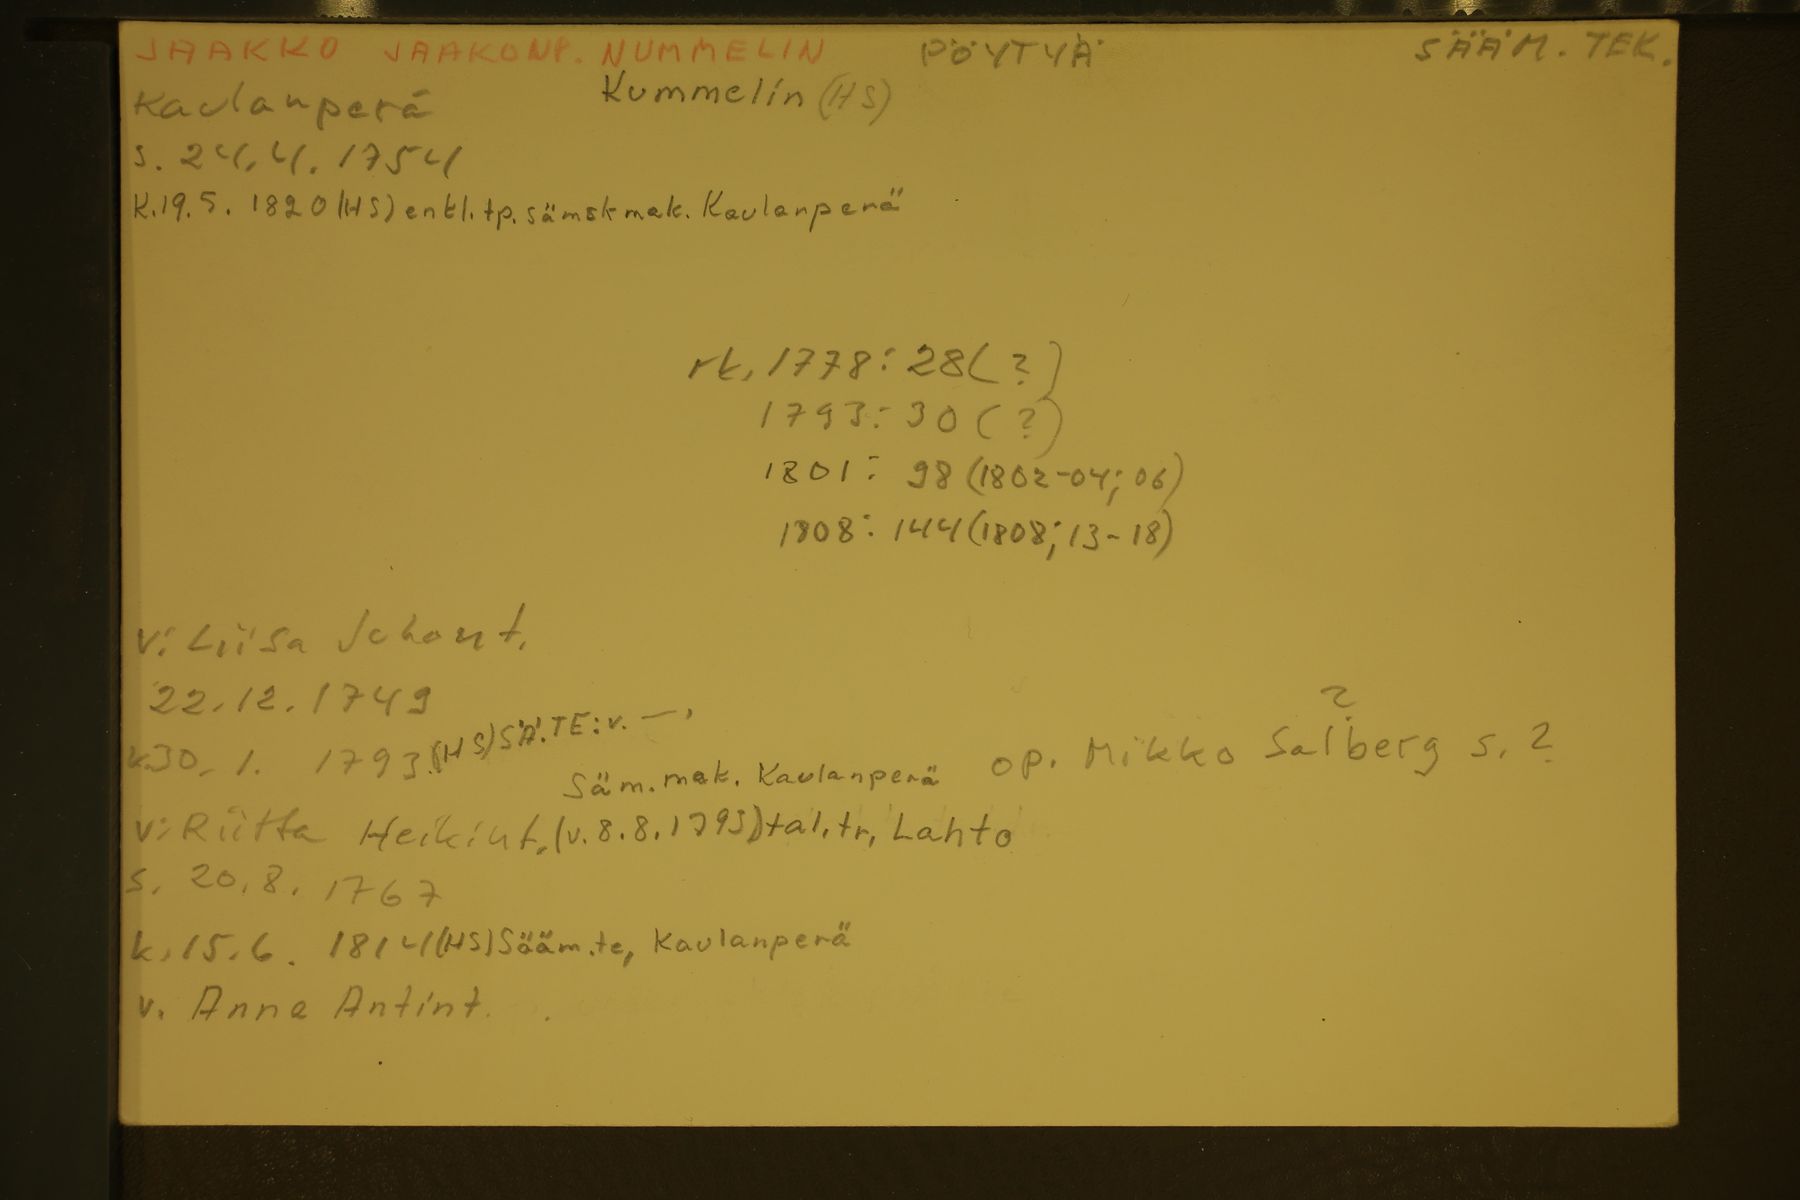 JAAKKO JAAKONP. NUMMELIN PÖYTYÄ SÄÄM. TEK.
Kummelin (HS)
Kaulanperä
s. 24.4. 1754
k.19.5. 1820 (HS) enkl. tp. sämskmak. Kaulanperä
rk. 1778: 28 (?)
1793: 30 (?)
1801: 98 (1802-04; 06)
1808: 144 (1808; 13-18)
v: Liisa Juhont.
22.12. 1749
k.30. 1. 1793. (HS) SÄ.TE: v. —,
?
Säm. mak. Kaulanperä op. Mikko Salberg s. ?
v: Riitta Heikint. (v. 8.8. 1793) tal. tr, Lahto
s. 20.8. 1767
k. 15.6. 1814 (HS) Sääm. te, Kaulanperä
v. Anna Antint.